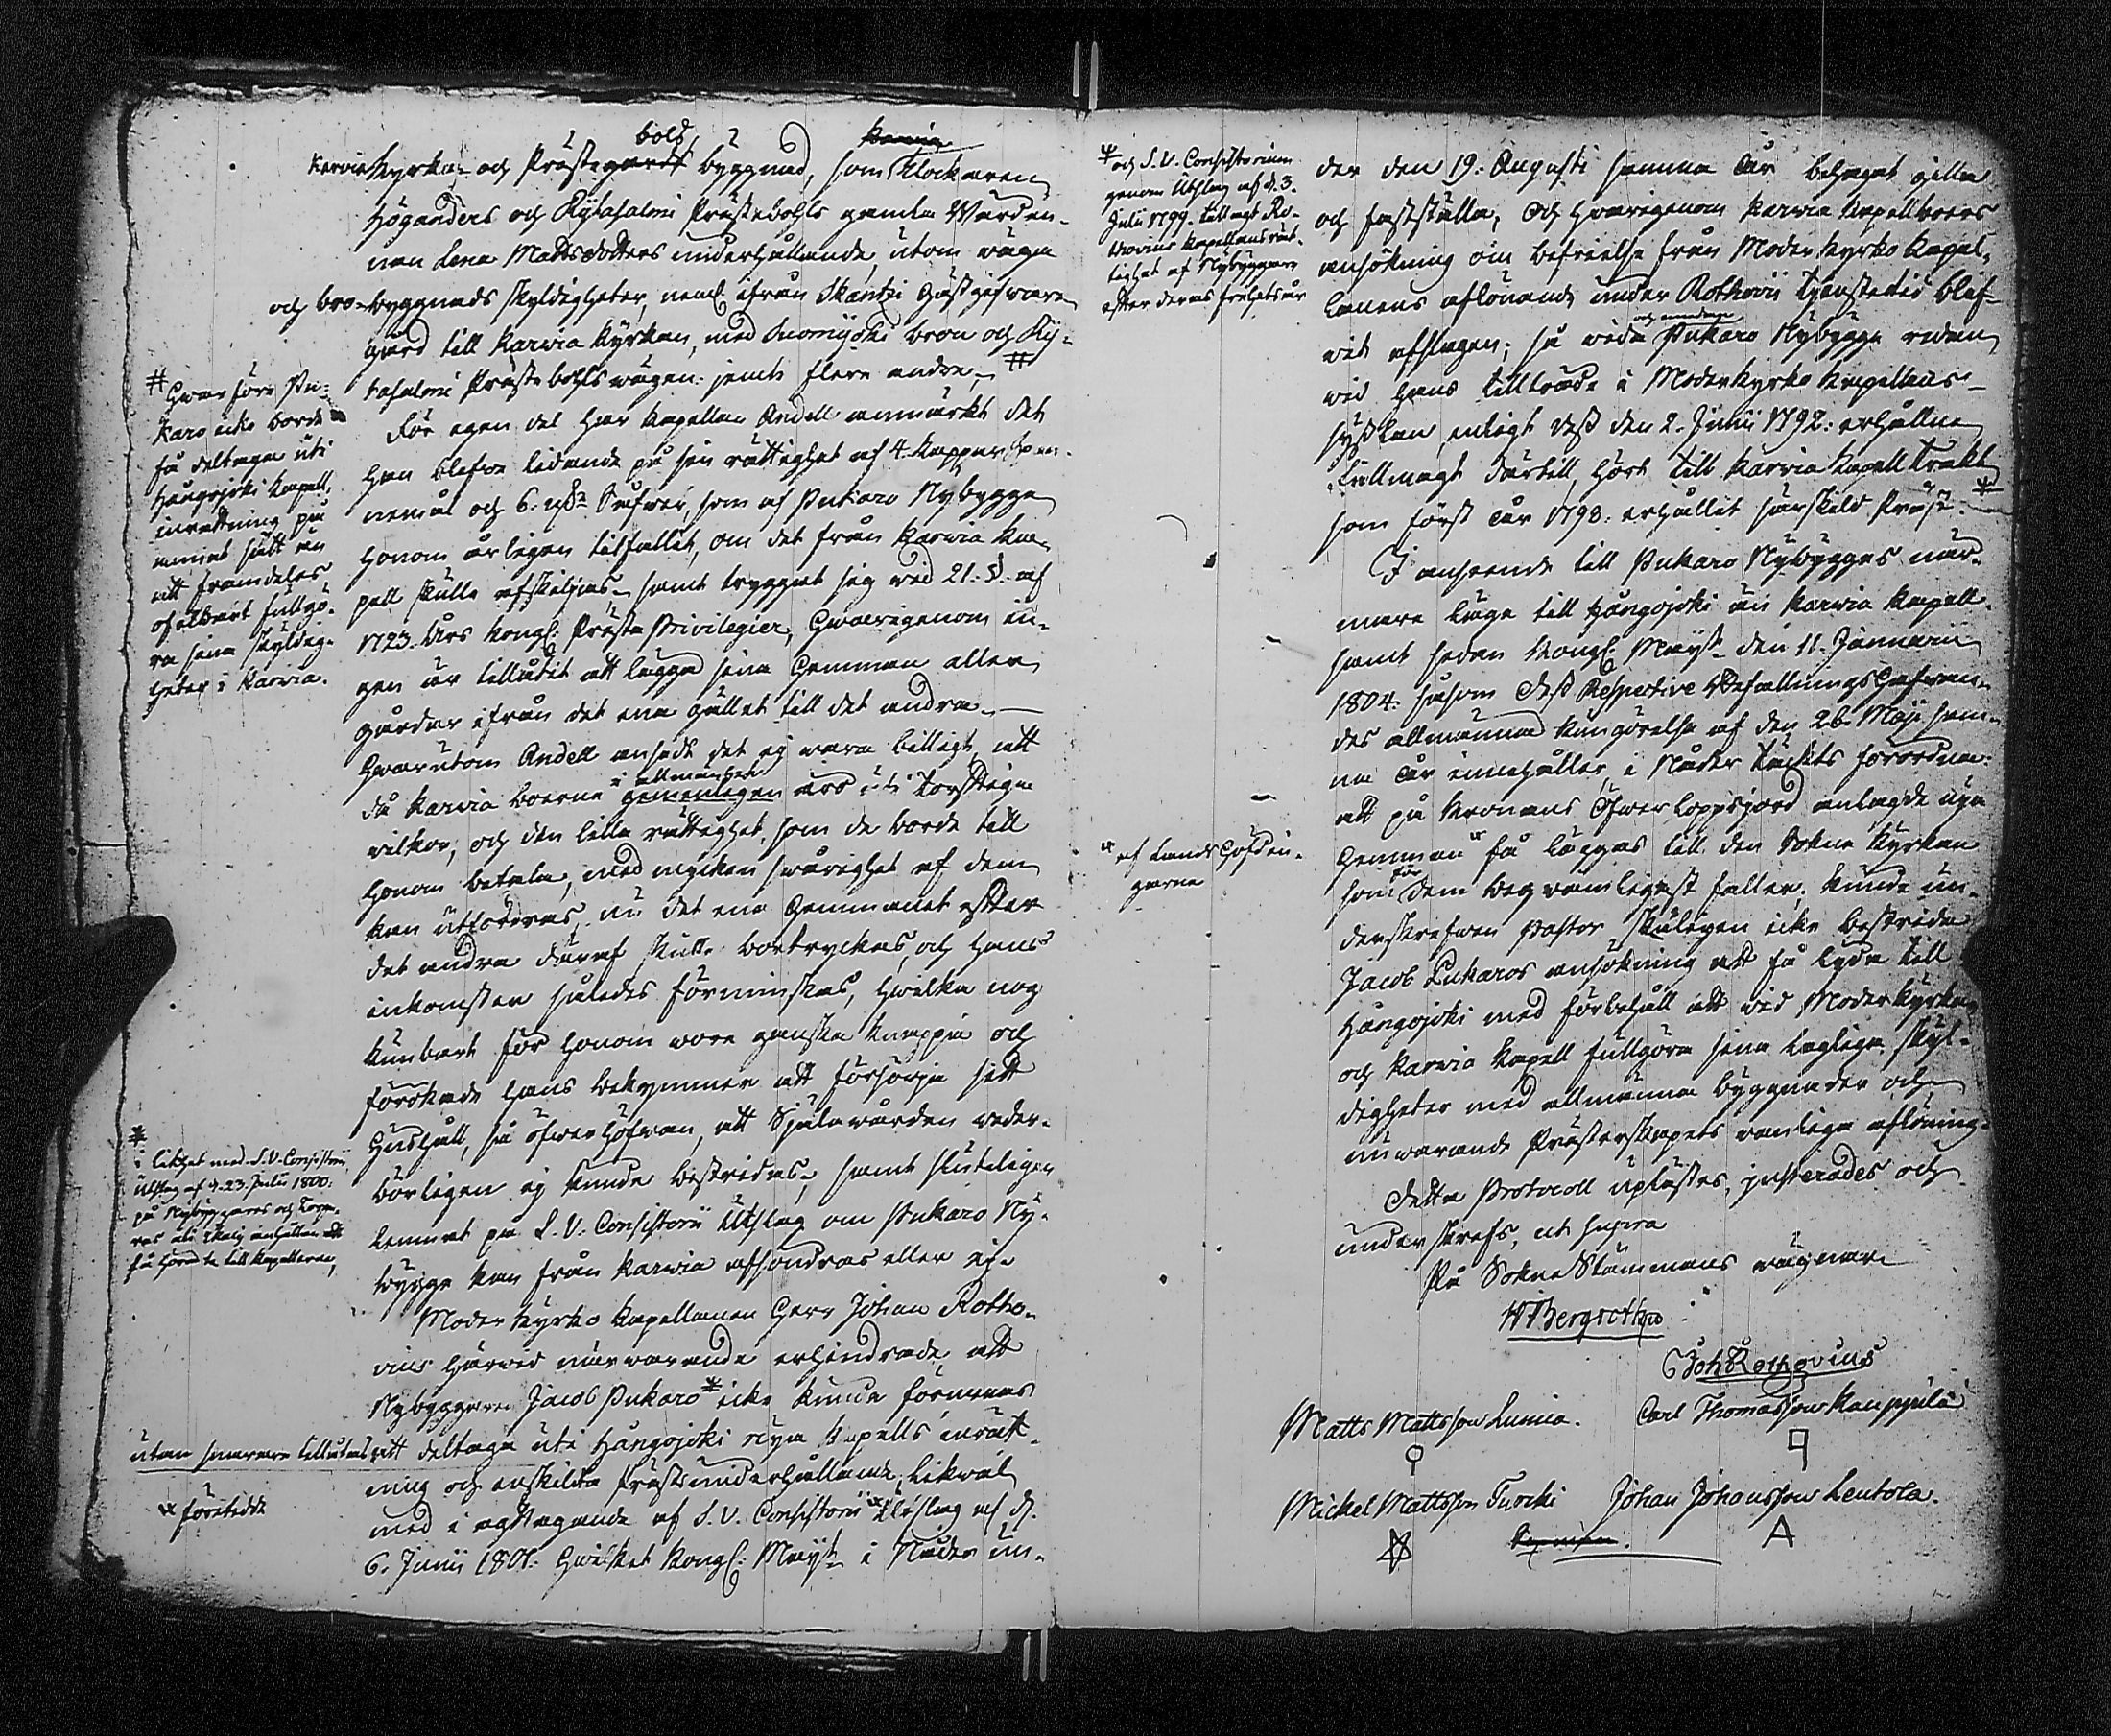 Karvia Kyrko- och Prästegårds bols byggnad, som Klockaren
Höganders och Kytasalmi Prästebohls gamla Värdin-
nan Lena Mattsdotters underhållande, utom wäga
och bro-byggnads skyldigheter, neml. ifrån Skantzi Gästgifware
gård till Karvia Kyrkan, med Suomijoki bron och Ky-
tasalmi Prästebohls wägen jemte flere andre, #
För egen del har Kapellan Andell anmärkt det
Han blefwe lidande på sin rättighet af 4. Kappar Span-
nemål och 6. Säfwer, som af Pukaro Nybygge
Honom årligen tilfallit, om det från Karvia Ka-
pell skulle afskiljas, samt tryggat sig wid 21. §. af
1723. Års Kongl. Präste Privilegier, Hwarigenom in-
gen är tillåtit att lägga sina Hemman eller
gårdar ifrån det ena Gället till det andra.
Hwarutom Andell ansedt det ej wara billigt, att
då Karvia boerne i allmänhet gemenligen äro uti torftiga
wilkor, och den lilla rättighet, som de borde till
Honom betala, med mycken swårighet af dem
kan utfordras, nu det ena Hemmanet efter
det andra däraf skulle bortryckas, och Hans
inkomster således förminskas, Hwilka nog
kunbart för Honom wore ganska knappa och
förökade Hans bekymmer att försörja sitt
Hushåll, så öfwerhöfwan, att Själawården weder-
börligen ej kunde bestridas, samt sluteligen
lemnat på S. V. Consistorii Utslag om Pukaro Ny-
bygge kan från Karvia afsöndras eller ej.
Moder Kyrko Kapellanen Herr Johan Rotho-
vius Härwid närwarande erhindrade, att
Nybyggaren Jacob Pukaro* icke kunde förmenas
utan snarare tillåtas att deltaga uti Hångojoki nya Kapells inrätt-
ning och enskilda Prästunderhållande, likwäl
med i agttagande af S. V. Consistorii Utslag af d.
6. Junii 1801. Hwilket Kongl. Maijst. i Nåder un-
# Hwarföre Pu-
karo icke borde
få deltaga uti
Hångojoki Kapell
inrättning på
annat sätt än
att framdeles
ofelbart fullgö-
ra sina skyldig-
heter i Karvia.
*
i likhet med S. V. Consistorii
Utslag af d. 23. Julii 1800.
på Nybyggares och Torpa-
res uti Skarf anhållan att
få Höra te till Kapellerne,
företedde
* och S. V. Consistorium
genom Utslag af d. 3.
Julii 1799. tillagt Ro-
thovius Kapellans rät-
tighet af Nybyggare
efter deras frihetsår
der den 19. Augusti samma År behagat gilla
och fastställa, och Hwarigenom Karvia Kapellboers
ansökning om befrielse från Moder Kyrko Kapel-
lanens aflönande under Rothovii tjenstetid blif-
wit afslagen; så wida och emedan Pukaro Nybygge redan
wid Hans tillträde i Moderkyrko Kapellans-
sysslan, enligt dess den 2. Junii 1792. erhållne
Fullmagt dertill, Hört till Karvia Kapell trakt
som först År 1798. erhållit särskild Präst. *
I anseende till Pukaro Nybygges när-
mare läge till Hångojoki än Karvia Kapell
samt sedan Kongl. Maijst. den 11. Januarii
1804. såsom Dess Respective Befallningshafwan-
des allmänna Kungörelse af den 26. Maji sam-
ma År innehåller, i Nåder täckts förordna:
att på Kronans Öfwerloppsjord anlagde nya
Hemman få läggas till den Sokne Kyrkan
som för dem beqwämligast faller, kunde un-
derskrefwen Pastor skäligen icke bestrida
Jacob Pukaros ansökning att få lyda till
Hångojoki med förbehåll att wid Moderkyrkan
och Karvia Kapell fullgöra sina laglige skyl-
digheter med allmänna byggnader och
nuwarande Prästerskapets wanliga aflöning.
Detta Protocoll uplästes, justerades och
underskrefs, ut supra
På Sokne Stämmans wägnar
W Bergroth
Joh Rothovius
af Lands Höfdin-
garne
Matts Mattsson Lumia. Carl Thomasson Kauppila
Mickel Mattsson Turcki Johan Johansson Lentola.